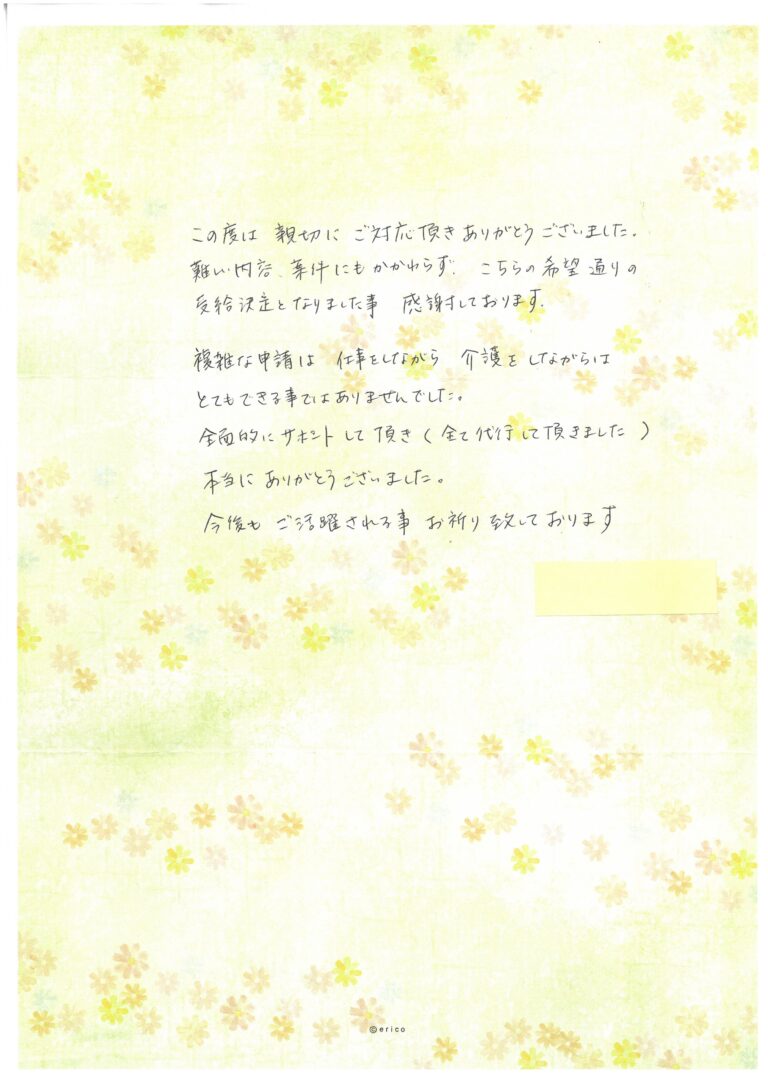 この度は 親切に ご対応頂きありがとうございました.
難しい内容、案件にもかかわらず. こちらの希望通りの
受給決定となりました事 感謝しております.
複雑な申請は 仕事をしながら 介護をしながらは
とてもできる事ではありませんでした。
全面的にサポートして頂き(全て代行して頂きました)
本当にありがとうございました。
今後も ご活躍される事 お祈り致しております
©erico